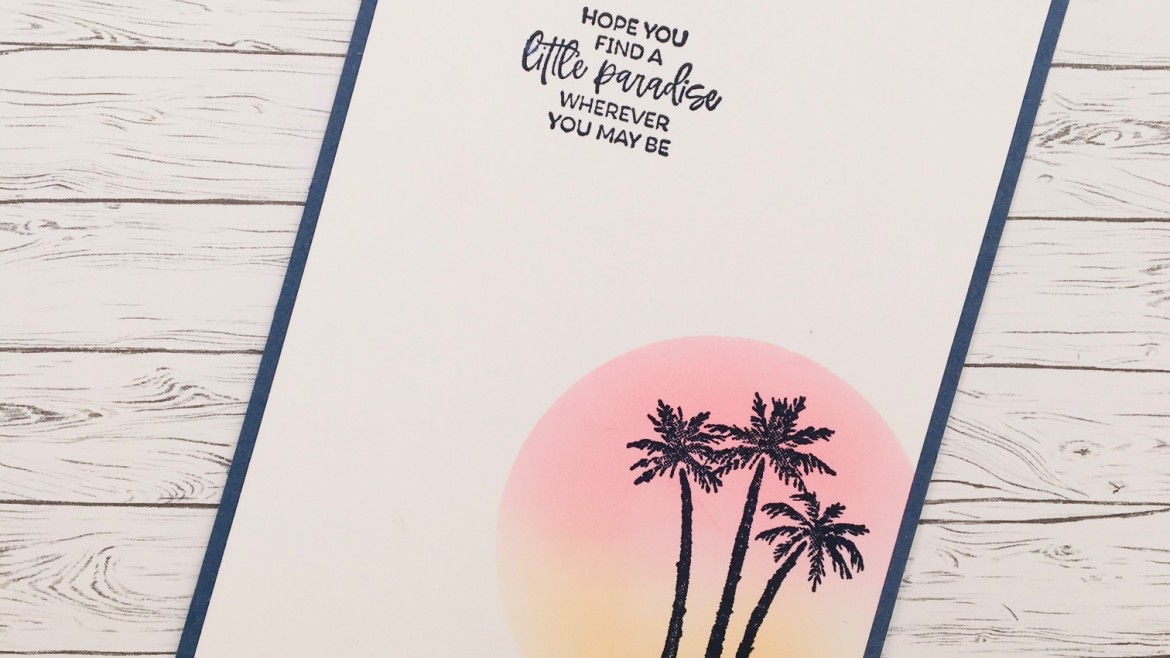 HOPE YOU
FIND A
little paradise
WHEREVER
YOU MAY BE